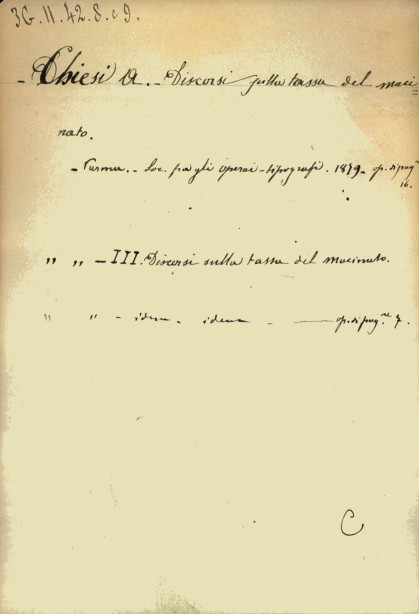 3G. II. 42. 8. e 9.
- Chiesi A. - Discorsi sulla tassa del maci=
nato.
- Parma. - Soc. fra gli operai-tipografi. 1879 - op. di pag.
16.
" " - III. Discorsi sulla tassa del macinato.
" " - idem. idem - — op. di pag.ne 7.
C